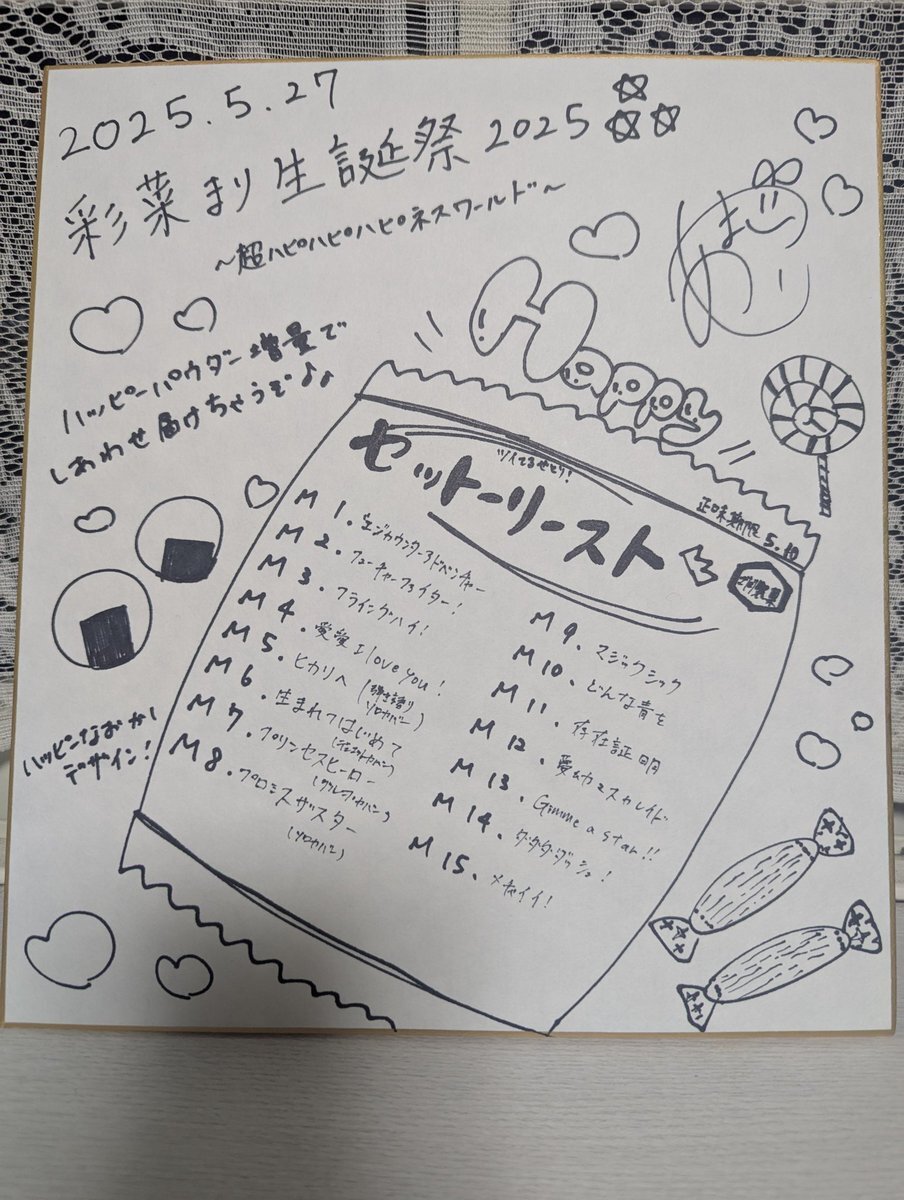 2025.5.27
彩菜まり生誕祭2025
～超ハピハピハピネスワールド～
ハッピーパウダー増量で
しあわせ届けちゃうぞ♪♪
Happy
ツイてるせとり!
セットーリースト
正味期限 5.10
M1.エンジカウンターアドベンチャー
M2.フューチャーファイター!
M3.フライングハイ!
M4.愛愛 I love you!
M5.ヒカリへ(弾き語りソロカバー)
M6.生まれてはじめて
M7.プリンセスヒーロー
M8.プロミスザスター
(ソロカバー)
M9.マジックシック
M10.どんな青を
M11.存在証明
M12.
M13.Gimme a star!!
M14.ダダダダッシュ!
M15.メチャイイ!
ハッピーなおかし
デザイン!